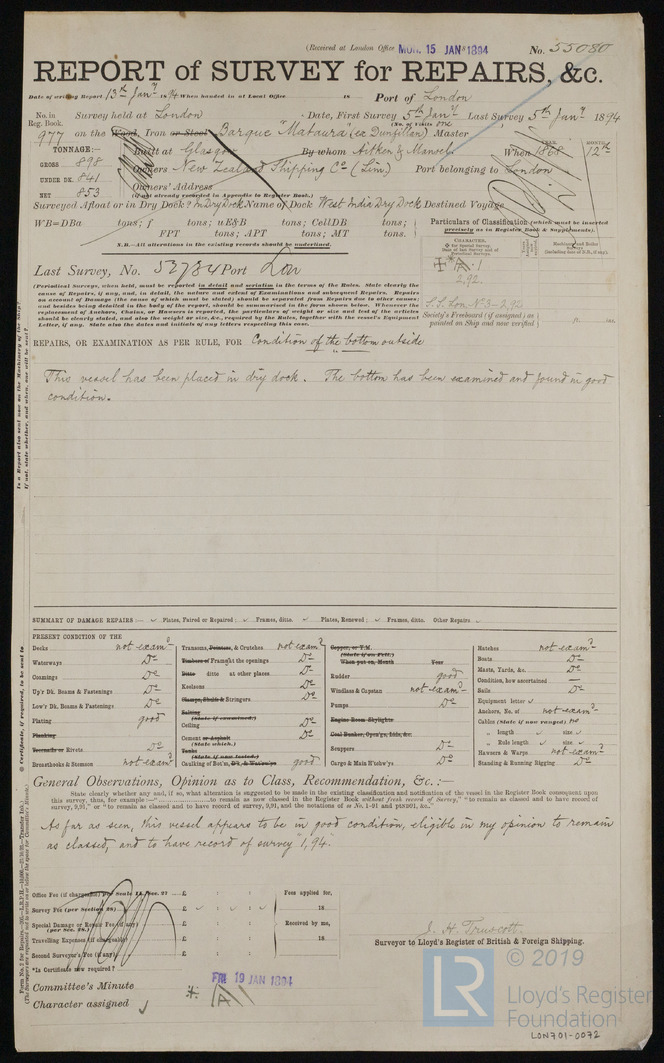 (Received at London Office MON. 15 JAN 1894
No. 55080
REPORT of SURVEY for REPAIRS, &c.
Date of writing Report 13th Jany 1894 When handed in at Local Office 18 Port of London
No. in Reg. Book. Survey held at London Date, First Survey 5th Jany Last Survey 5th Jany 1894
(No. of Visits one
977 on the Wood, Iron or Steel Barque "Mataura" (ex Dunfillan) Master
TONNAGE:— Built at Glasgow By whom Aitken & Mansel. When 1868 MONTH 12th
GROSS 898 Owners New Zealand Shipping Co (Lim) Port belonging to London
UNDER DK. 841 Owners' Address
NET 853 (if not already recorded in Appendix to Register Book.)
Surveyed Afloat or in Dry Dock? In Dry Dock Name of Dock West India Dry Dock Destined Voyage
WB=DBa tons; f tons; uE&B tons; CellDB tons;
FPT tons; APT tons; MT tons.
N.B.—All alterations in the existing records should be underlined.
Particulars of Classification (which must be inserted precisely as in Register Book & Supplements).
CHARACTER.
A 1
2,92
S.S. Lon. No 3-2,92
Society's Freeboard (if assigned) as painted on Ship and now verified ft. ins.
Last Survey, No. 52784 Port Lon
(Periodical Surveys, when held, must be reported in detail and seriatim in the terms of the Rules. State clearly the
cause of Repairs, if any, and, in detail, the nature and extent of Examinations and subsequent Repairs. Repairs
on account of Damage (the cause of which must be stated) should be separated from Repairs due to other causes;
and besides being detailed in the body of the report, should be summarised in the form shown below. Whenever the
replacement of Anchors, Chains, or Hawsers is reported, the particulars of weight or size and test of the articles
should be clearly stated, and also the weight or size, &c., required by the Rules, together with the vessel's Equipment
Letter, if any. State also the dates and initials of any letters respecting this case.
REPAIRS, OR EXAMINATION AS PER RULE, FOR Condition of the bottom outside
This vessel has been placed in dry dock. The bottom has been examined and found in good
condition.
SUMMARY OF DAMAGE REPAIRS:— Plates, Faired or Repaired; Frames, ditto. Plates, Renewed; Frames, ditto. Other Repairs
PRESENT CONDITION OF THE
Decks not examd
Waterways Do
Coamings Do
Up'r Dk. Beams & Fastenings Do
Low'r Dk. Beams & Fastenings Do
Plating good
Planking
Treenails or Rivets Do
Breasthooks & Stemson not examd
Transoms, Pointers, & Crutches not examd
Timbers or Frames at the openings Do
Ditto ditto at other places Do
Keelsons Do
Clamps, Shelfs & Stringers Do
Salting
(State if examined.)
Ceiling Do
Cement or Asphalt Do
(State which.)
Tanks
(State if now tested.)
Caulking of Bot'm, D'k, & Waterways good
Copper, or Y.M.
(State if on Felt.)
When put on, Month Year
Rudder good
Windlass & Capstan not examd
Pumps Do
Engine Room Skylights
Coal Bunker, Open'gs, Lids, &c.
Scuppers Do
Cargo & Main H'tchw'ys Do
Hatches not examd
Boats Do
Masts, Yards, &c. Do
Condition, how ascertained —
Sails Do
Equipment letter
Anchors, No. of not examd
Cables (State if now ranged) no
" length size
" Rule length size
Hawsers & Warps not examd
Standing & Running Rigging Do
General Observations, Opinion as to Class, Recommendation, &c. :—
State clearly whether any, if so, what alteration is suggested to be made in the existing classification and notification of the vessel in the Register Book consequent upon
this survey, thus, for example:—" to remain as now classed in the Register Book without fresh record of Survey," "to remain as classed and to have record of
survey, 9,91," or "to remain as classed and to have record of survey, 9,91, and the notations of ss No.1-91 and ptnb91, &c.,"
As far as seen, this vessel appears to be in good condition, eligible in my opinion to remain
as classed, and to have record of survey "1,94."
Office Fee (if chargeable) per Scale II., Sec. 27 £ : : Fees applied for,
Survey Fee (per Section 28) £ : : 18
Special Damage or Repair Fee (if any) (per Sec. 28.) £ : : Received by me,
Travelling Expenses (if chargeable) £ : : 18
Second Surveyor's Fee (if any) £ : :
*Is Certificate now required?
J. H. Truscott.
Surveyor to Lloyd's Register of British & Foreign Shipping.
Committee's Minute FRI 19 JAN 1894
Character assigned A 1
LR
© 2019
Lloyd's Register
Foundation
LON701-0072